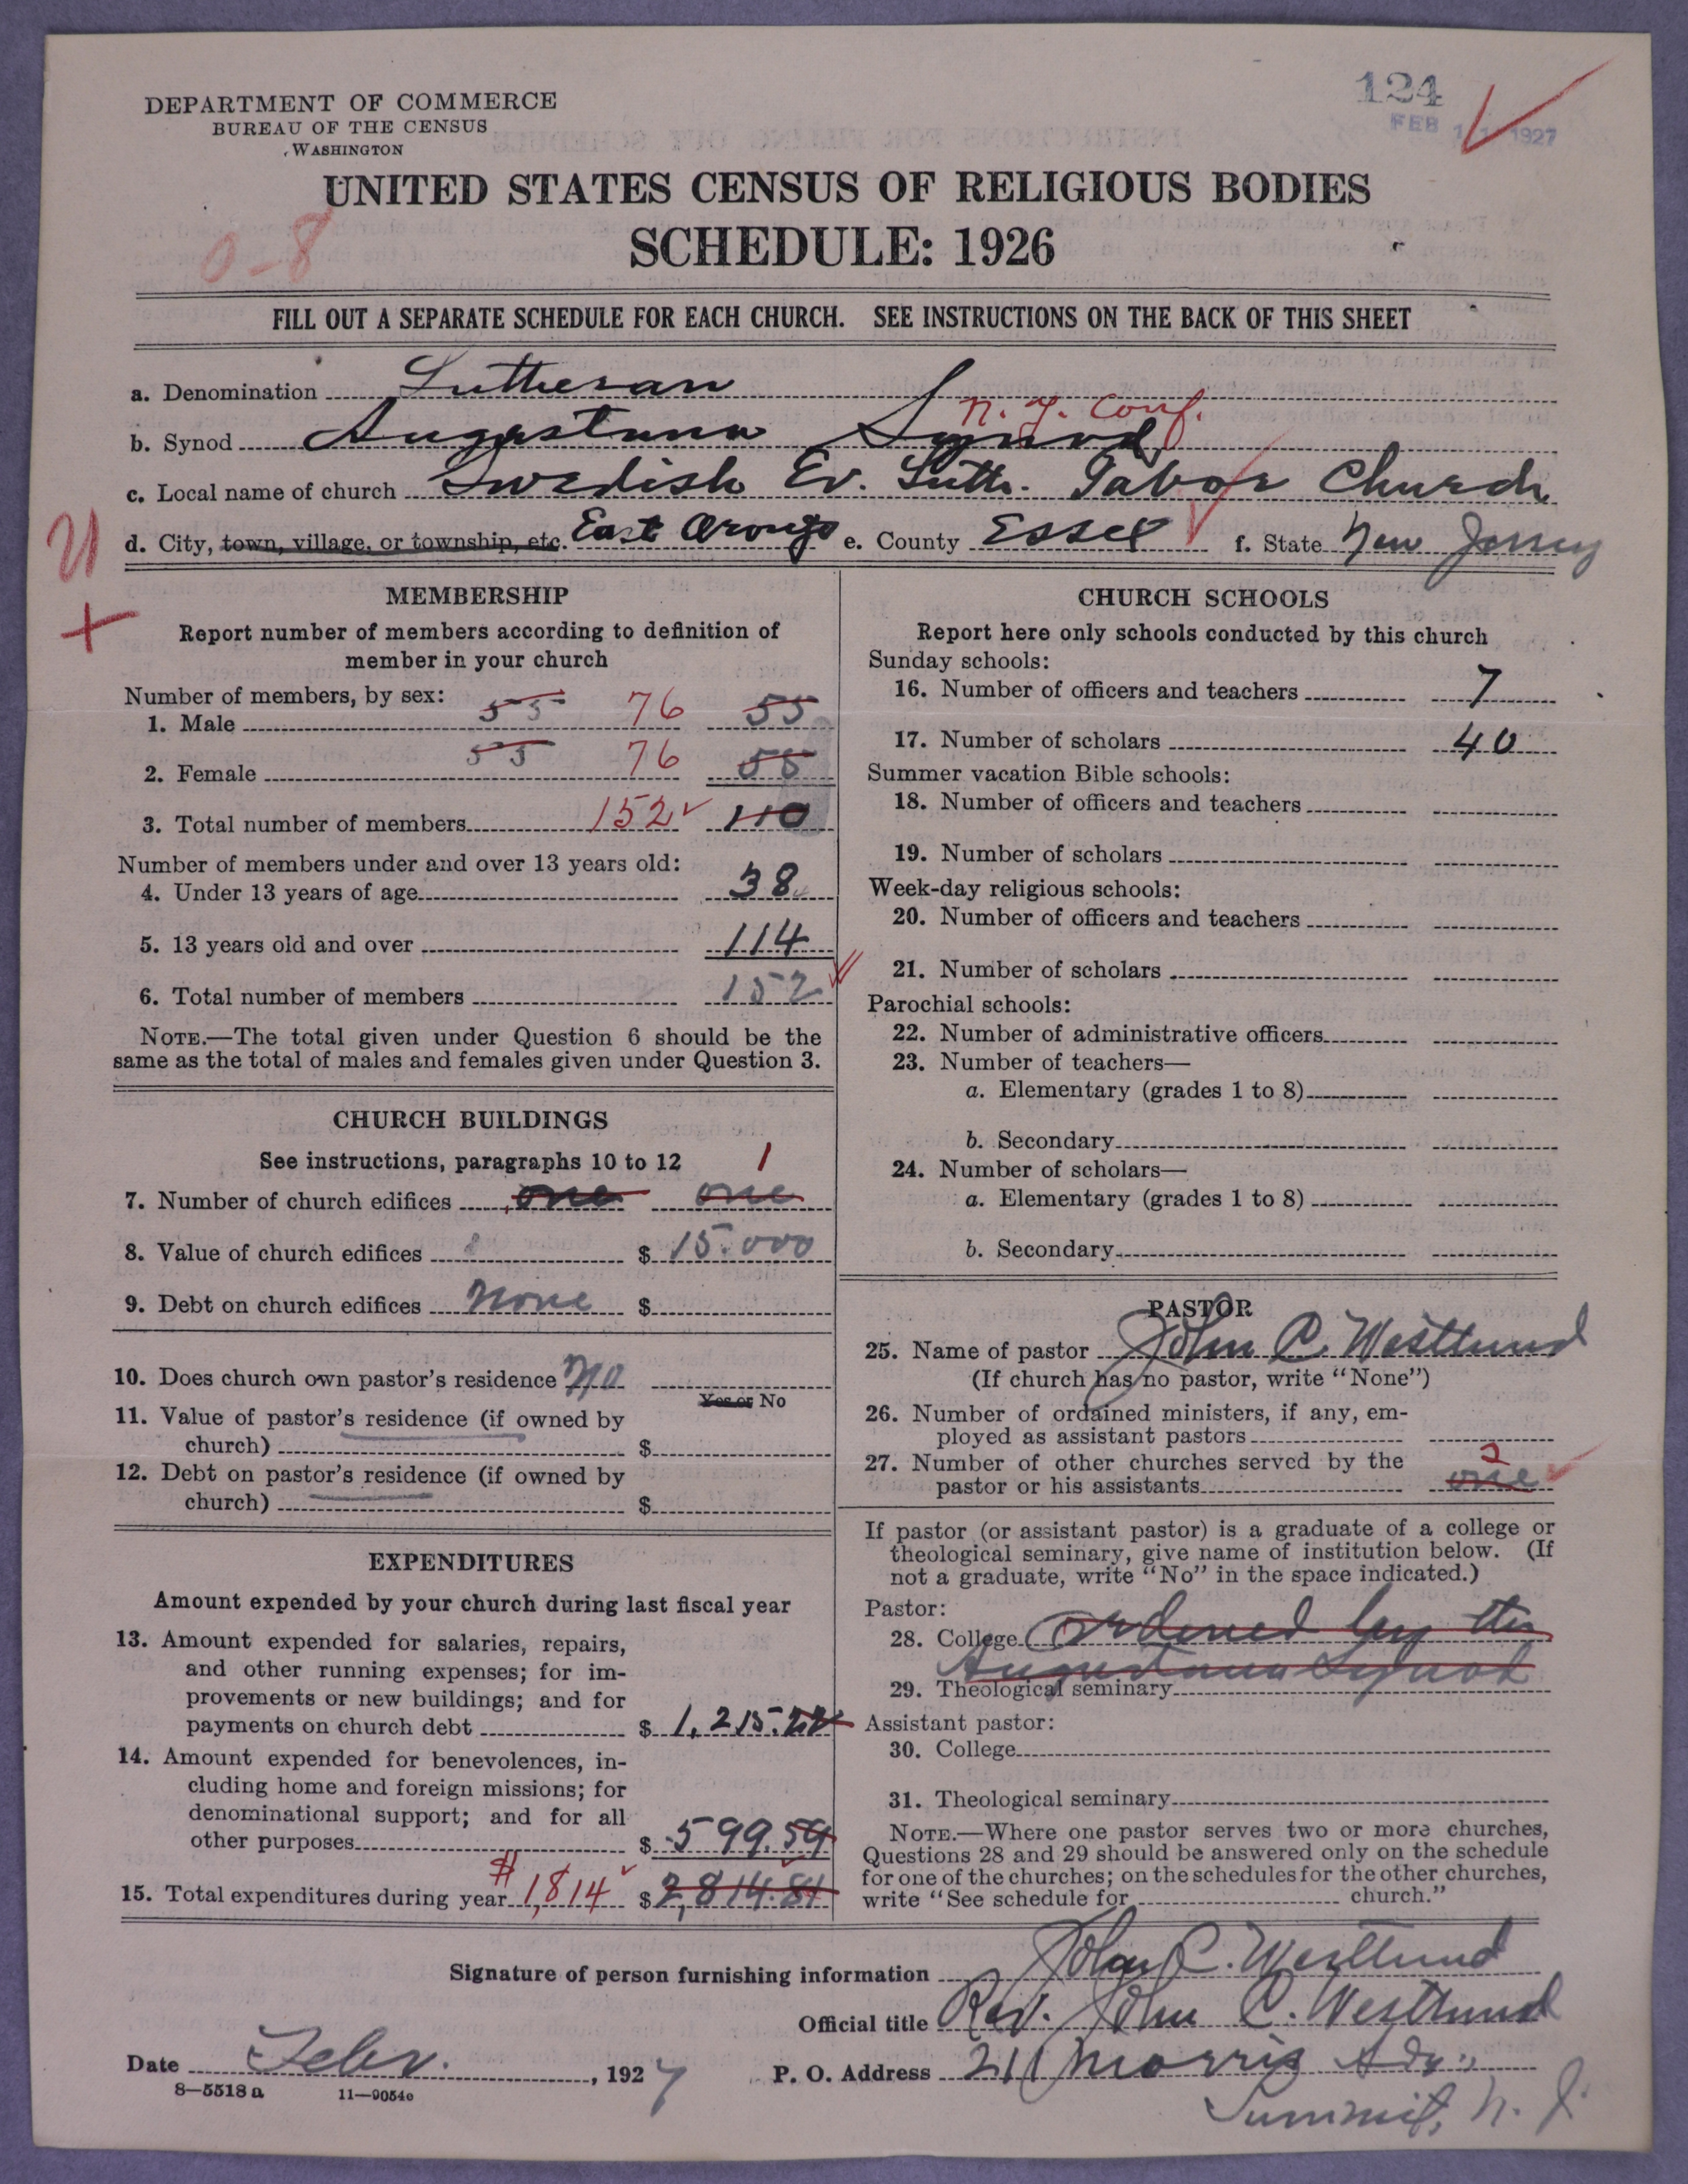 124
FEB 1 1927
DEPARTMENT OF COMMERCE
BUREAU OF THE CENSUS
WASHINGTON
UNITED STATES CENSUS OF RELIGIOUS BODIES
SCHEDULE: 1926
0-8
FILL OUT A SEPARATE SCHEDULE FOR EACH CHURCH. SEE INSTRUCTIONS ON THE BACK OF THIS SHEET
a. Denomination Lutheran
N. Y. Conf.
b. Synod Augustana Synod
c. Local name of church Swedish Ev. Luth. Tabor Church
d. City, town, village, or township, etc. East Orange e. County Essex f. State New Jersey
MEMBERSHIP
Report number of members according to definition of
member in your church
Number of members, by sex:
1. Male 55 76 55
2. Female 55 76 55
3. Total number of members 152 110
Number of members under and over 13 years old:
4. Under 13 years of age 38
5. 13 years old and over 114
6. Total number of members 152
NOTE.—The total given under Question 6 should be the
same as the total of males and females given under Question 3.
CHURCH BUILDINGS
See instructions, paragraphs 10 to 12 1
7. Number of church edifices one one
8. Value of church edifices $ 15.000
9. Debt on church edifices none $
10. Does church own pastor's residence no
Yes or No
11. Value of pastor's residence (if owned by
church) $
12. Debt on pastor's residence (if owned by
church) $
EXPENDITURES
Amount expended by your church during last fiscal year
13. Amount expended for salaries, repairs,
and other running expenses; for im-
provements or new buildings; and for
payments on church debt $ 1,215.22
14. Amount expended for benevolences, in-
cluding home and foreign missions; for
denominational support; and for all
other purposes $ 599.59
15. Total expenditures during year $1,814 $ 2,814.81
CHURCH SCHOOLS
Report here only schools conducted by this church
Sunday schools:
16. Number of officers and teachers 7
17. Number of scholars 40
Summer vacation Bible schools:
18. Number of officers and teachers
19. Number of scholars
Week-day religious schools:
20. Number of officers and teachers
21. Number of scholars
Parochial schools:
22. Number of administrative officers
23. Number of teachers—
a. Elementary (grades 1 to 8)
b. Secondary
24. Number of scholars—
a. Elementary (grades 1 to 8)
b. Secondary
PASTOR
25. Name of pastor John C. Westlund
(If church has no pastor, write "None")
26. Number of ordained ministers, if any, em-
ployed as assistant pastors
27. Number of other churches served by the
pastor or his assistants one 2
If pastor (or assistant pastor) is a graduate of a college or
theological seminary, give name of institution below. (If
not a graduate, write "No" in the space indicated.)
Pastor:
28. College Ordened by the
Augustana Synod
29. Theological seminary
Assistant pastor:
30. College
31. Theological seminary
NOTE.—Where one pastor serves two or more churches,
Questions 28 and 29 should be answered only on the schedule
for one of the churches; on the schedules for the other churches,
write "See schedule for church."
Signature of person furnishing information John C. Westlund
Official title Rev. John C. Westlund
Date Febr. , 1927 P. O. Address 211 Morris Adv.,
Summit, N. J.
8—5518 a 11—9054e